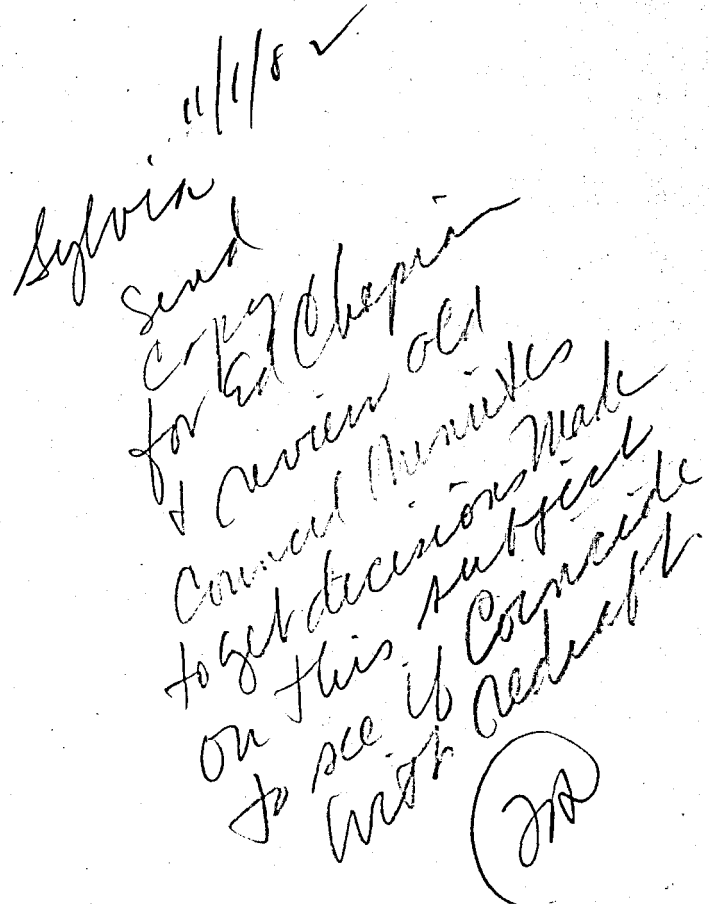 11/1/82
Sylvia
Send
copy
for Ed Chapin
& review old
Council Minutes
to get decisions Made
on this subject
to see if Coincide
with redraft.